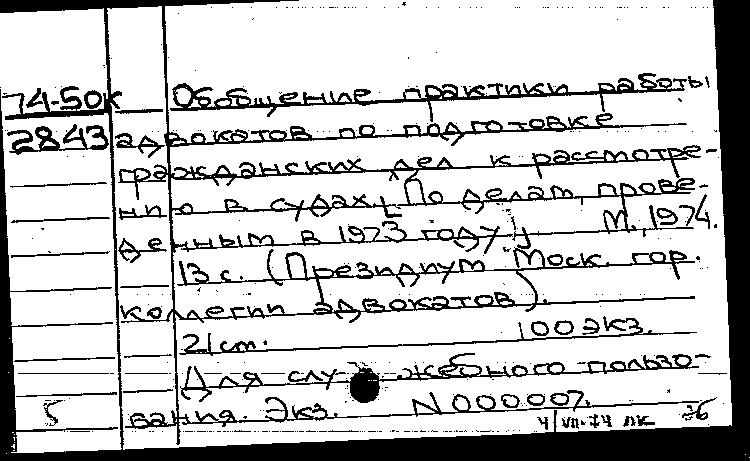 74-50К Обобщение практики работы
2843 адвокатов по подготовке
гражданских дел к рассмотре-
нию в судах. [По делам, прове-
денным в 1973 году]. М., 1974.
13 с. (Президиум Моск. гор.
коллегии адвокатов).
21 cm. 100 экз.
Для служебного пользо-
5 вания. Экз. N 000007.
4/VII-74 ЛК